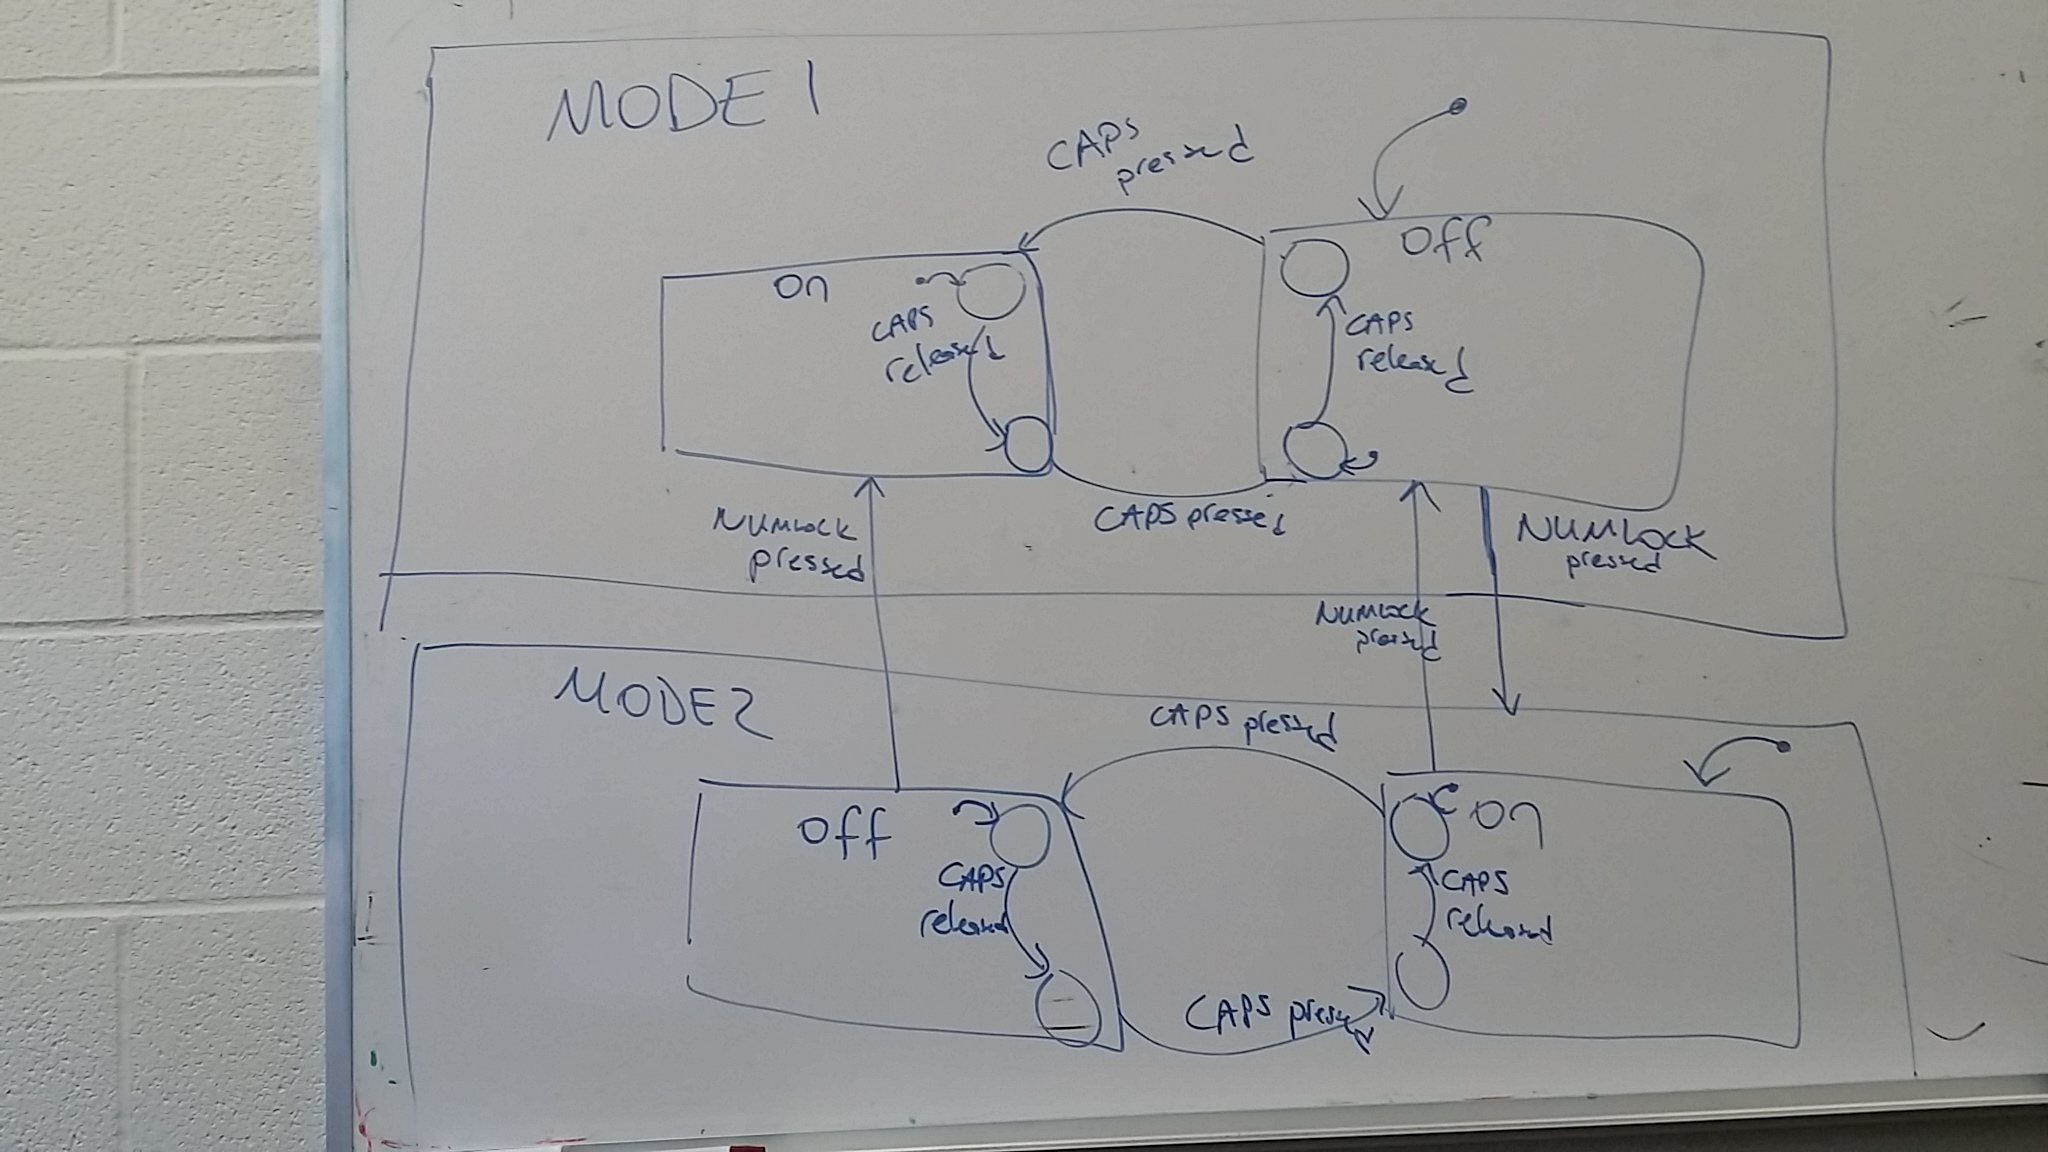 MODE 1
CAPS
pressed
on
off
CAPS
released
CAPS
released
CAPS pressed
NUMLOCK
pressed
NUMLOCK
pressed
NUMLOCK
pressed
MODE 2
CAPS pressed
off
on
CAPS
released
CAPS
released
CAPS pressed